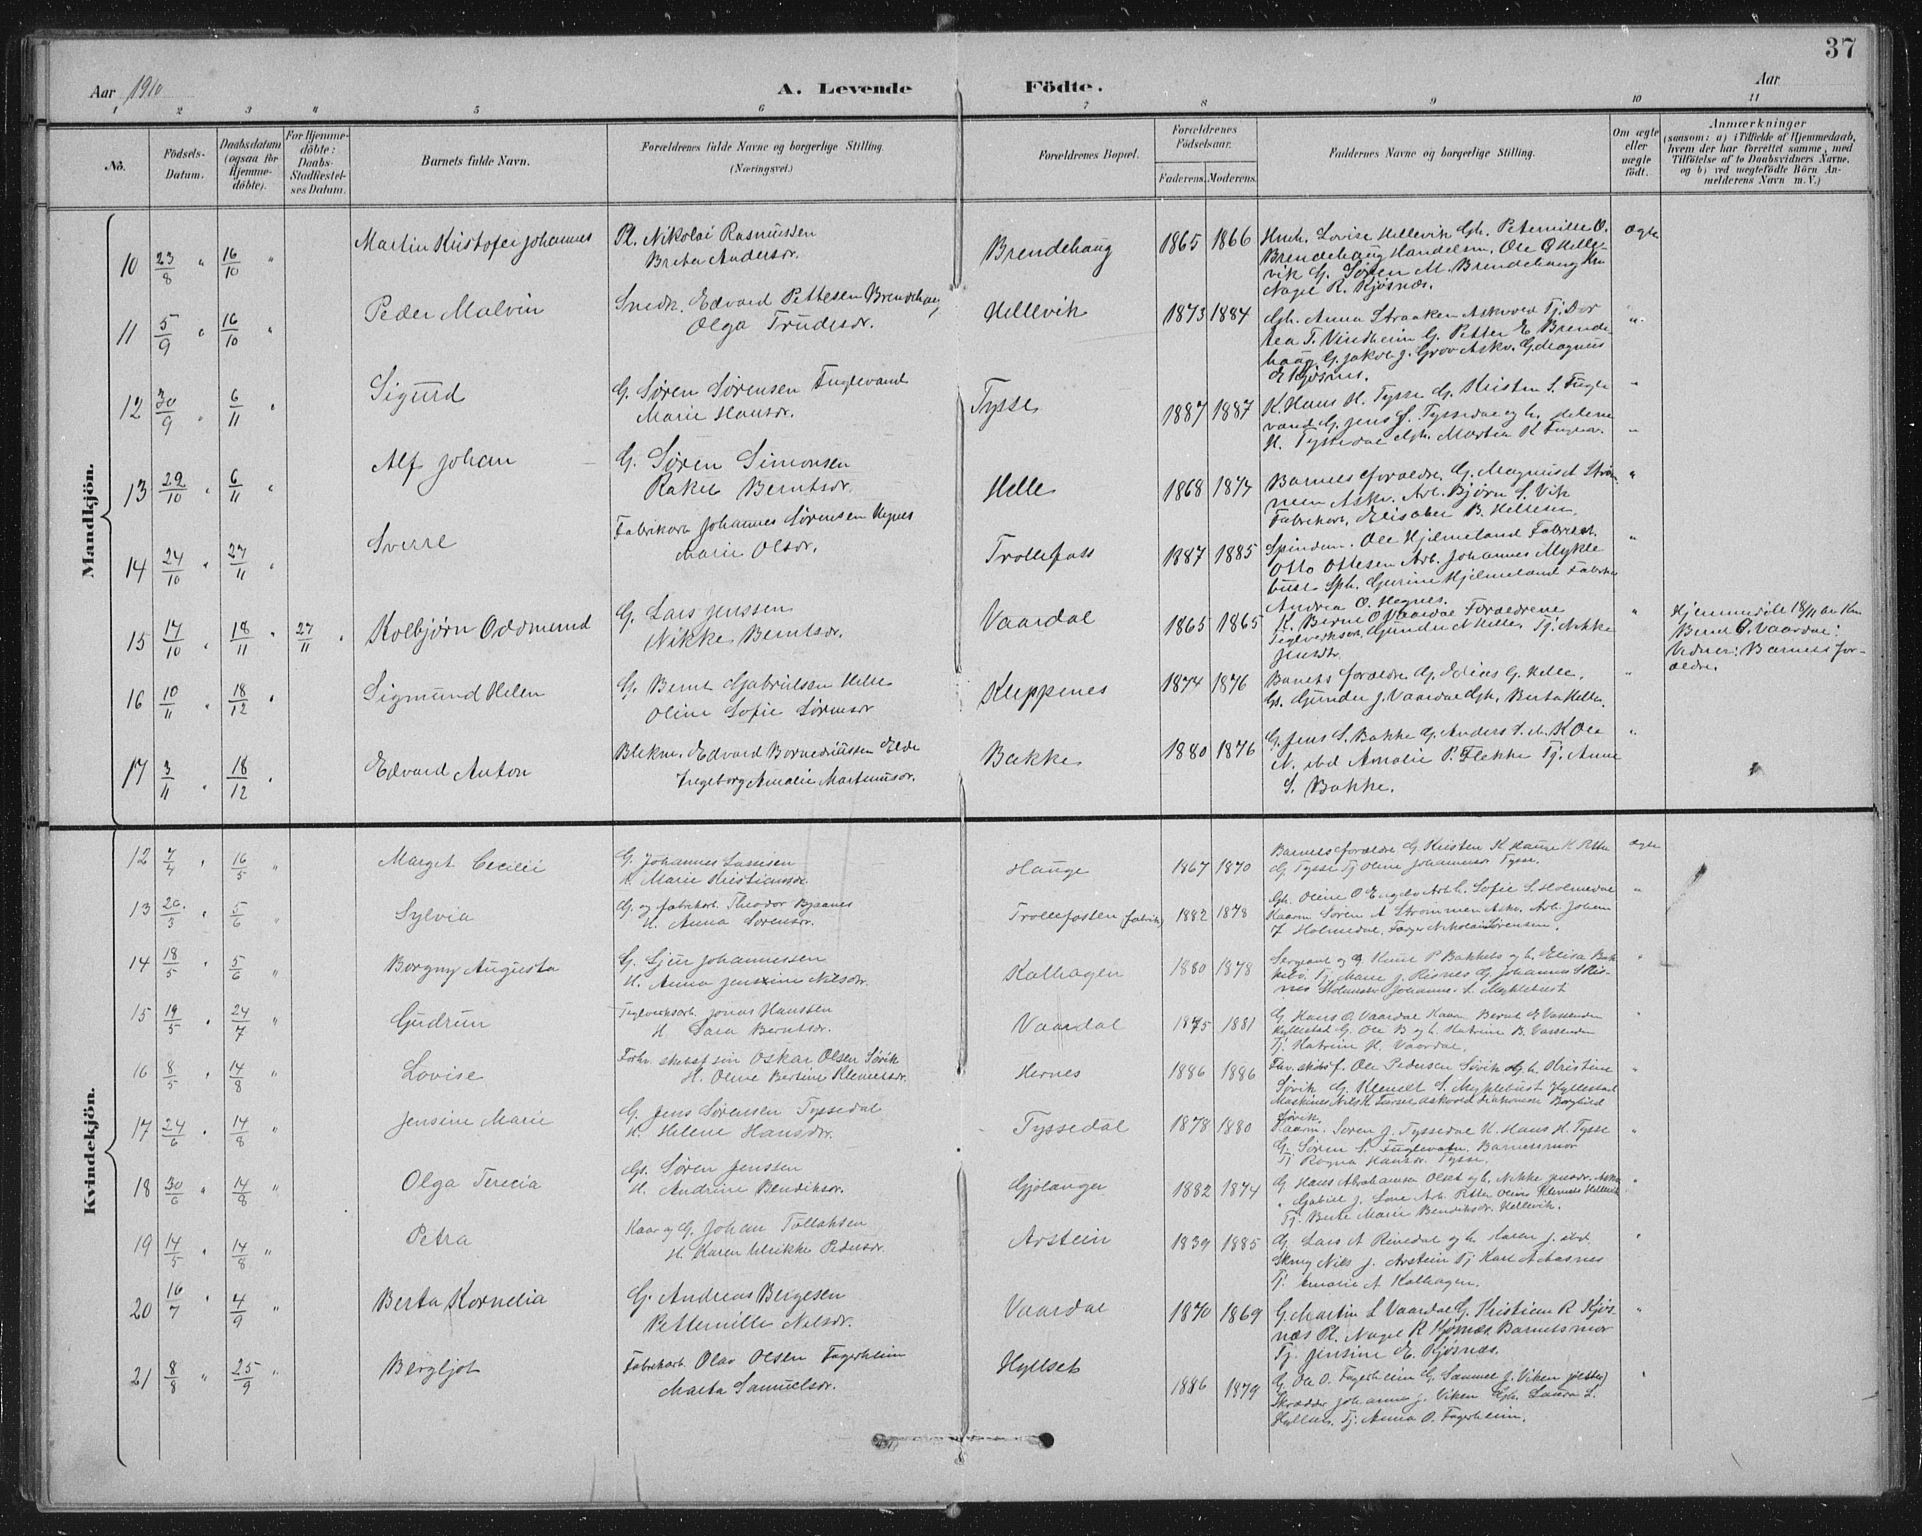 37
Aar 1910
A. Levende Födte.
Aar
1 2 3 4 5 6 7 8 9 10 11
No.
Födsels-Datum.
Daabsdatum (ogsaa for Hjemmedöbte).
For Hjemmedöbte: Daabs-Stadfæstelses Datum.
Barnets fulde Navn.
Forældrenes fulde Navne og borgerlige Stilling. (Næringsvei.)
Forældrenes Bopæl.
Forældrenes Födselsaar.
Faderens. Moderens.
Faddernes Navne og borgerlige Stilling.
Om ægte eller uægte födt.
Anmærkninger
(saasom: a) i Tilfælde af Hjemmedaab, hvem der har forrettet samme, med Tilföielse af to Daabsvidners Navne, og b) ved uegtefödte Börn Anmelderens Navn m. V.)
Mandkjön.
10 23/8 " 16/10 " Martin Kristofer Johannes
Pl. Nikolai Rasmussen
Brita Andersdr.
Brendehaug 1865 1866
Lovise Hellevik Gh. Peternille O.
Brendehaug Handelsm. Ole O Helle-
vik G. Søren M. Brendehaug
Nagel R. Kjøsnæs.
Ægte
11 5/9 " 16/10 " Peder Malvin
Snedk. Edvard Pettesen Brendehaug,
Olga Trudesdr.
Hellevik 1873 1884
Gh. Anna Straaken Askvoed Tj. Dor
tea T. Viredheim G. Petter E Brende
haug G. Jakob J. Grov Askv. G. Magnus
E Kjøsnes.
"
12 30/9 " 6/11 " Sigurd
G. Søren Sørensen Fuglevand
Marie Hansdr.
Tysse 1887 1887
K. Hans H. Tysse G. Kristen S. Fugle
vand G. Jens S. Tyssedal og h. Helene
H. Tyssedal Gh. Martia K Fuglev.
"
13 29/10 " 6/11 " Alf Johan
G. Søren Simonsen
Rakel Berntsdr.
Helle 1868 1877
Barnets forældre G. Magnus A Strøm-
men Askv. Arb. Bjørn S. Vik
Fabrikarb. Elisaber B. Hellesen.
"
14 24/10 " 27/11 " Sverre
Fabrikarb Johannes Sørensen Hegnes
Marie Olsdr.
Trollefoss 1887 1885
Spindem. Ole Hjelmeland Fabrikarb.
Otto Ottesen Arb. Johannes Mykle
bust Sph. Gurine Hjelmeland Fabrika
Andrea O. Hegnes.
"
15 17/10 " 18/11 " 27/11 " Kolbjørn Oddmund
G. Lars Jenssen
Nikke Berntsdr.
Vaardal 1865 1865
K. Bernt O Vaardal Forældrene
Teglverksarb. Gunder A Helle, Tj. Nikke
Jensdtr.
"
Hjemmedøbt 18/11 av Km
Bernt O. Vaardal.
Vidner: Barnets for-
ældre.
16 10/11 " 18/12 " Sigmund Helen
G. Bernt Gabrielsen Helle
Oline Sofie Sørensdr
Kleppenes 1874 1876
Barnets forældre G. Elias G. Helle.
Gs. Gunder J. Vaardal Gh. Berta Helle.
"
17 3/11 " 18/12 " Edvard Anton
Blikm. Edvard Bornediussen Elde
Ingeborg Amalie Martinusdr.
Bakke 1880 1876
G. Jens S. Bakke G. Anders S. ibd K Ole
N. ibd Amalie P. Flekke Tj. Anne
S. Bakke.
"
Kvindekjön.
12 7/4 " 16/5 " Marget Cecilie
G. Johannes Lassesen
H. Marie Kristiansdr.
Hauge 1867 1870
Barnets forældre G. Kristen K Hauge K Petter
G Tysse Tj Oline Johannesdr Tysse.
Ægte
13 20/3 " 5/6 " Sylvia
G. og fabrikarb. Theodor Bysanes
H. Anna Sørensdr.
Trollefossen (fabrik) 1882 1878
Gh. Oline O Engebø Arb h. Sofie S. Holmedal
Kaarm Søren A Strømmen Askv. Arb. Johan
J Holmedal, Farger Nikolai Sørensen.
"
14 18/5 " 5/6 " Borgny Augusta
G. Sjur Johannessen
H. Anna Jensine Nilsdr.
Kalhagen 1880 1878
Sergeant og G Knut P Bakkebø og h. Elisa Bak
kebø Tj. Marie J. Risnes G. Johannes S Ris-
nes Johanne. S. Myklebust
"
15 19/5 " 24/7 " Gudrun
Teglverksarb. Jonas Hanssen
H. Sara Berntsdr.
Vaardal 1875 1881
G. Hans O. Vaardal Kaarm Bernt E Vassenden
Hyllestad G. Ole B og h. Katrine B. Vassenden
Tj. Katrine H. Vaardal.
"
16 8/5 " 14/8 " Lovise
Forhv. skibsf søn Oskar Olsen Søvik
H. Oline Bertine Klemetsdr.
Hernes 1886 1886
Fhv. skibsf. Ole Pedersen Søvik og h. Kristine
Søvik G. Klemet S. Myklebust Hyllestad
Maskinist Nils K askvold Bergliod
Søvik
"
17 24/6 " 14/8 " Jensine Marie
G. Jens Sørensen Tyssedal
H. Helene Hansdr.
Tyssedal 1878 1880
Kaarm. Soren J. Tyssedal K. Hans H. Tysse
G. Søren S. Fuglevatn. Barnets mor
Tj Ragna Hansdr. Tysse.
"
18 30/6 " 14/8 " Olga Terecia
Gs. Søren Jenssen
H. Andrine Bendiksdr.
Gjølanger 1882 1874
G. Hans Abrahamsen Olset og h. Nikke Jensdr. Askv.
Gabriel J. Lone Arb. Petter Olius Klemets Hellevik
Tj. Berte Marie Bendiksdr. Hellevik.
"
19 14/5 " 14/8 " Petra
Kaar og G. Johan Tollaksen
H. Karen Ulrikke Pedersdr.
Arstein 1839 1885
G. Lars A Rivedal og h. Karen J. ibd.
Nils J. Arstein Tj Kari A Aasnes
Tj. Amalie A Kalhagen.
"
20 16/7 " 4/9 " Berta Kornelia
G. Andreas Bergesen
Petternille Nilsdr.
Vaardal 1870 1869
G. Martin L Vaardal G. Kristian R Kjøs-
næs Pl. Nagel R Kjøsnæs Barnets mor
Tj. Jensine E. Kjøsnæs.
"
21 8/8 " 25/9 " Bergljot
Fabrikarb Olav Olsen Fagerheim
Marta Samuelsdr.
Hyllset 1886 1879
G. Ole O. Fagerheim G. Samuel J. Viken Jølster)
Skrædder Johannes J. Viken Gh. Laura L.
Tj. Anna O. Fagerheim.
"